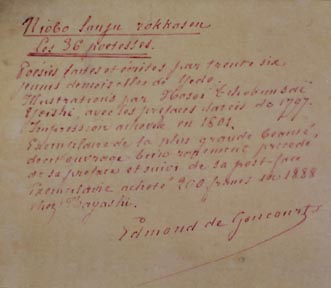 Niobo Sanju rokkasen
Les 36 poétesses.
Poésies faites et écrites par trente six
jeunes demoiselles de Yedo.
Illustrations par Hosoï Tchobounsaï
Yeishi, avec les préfaces datées de 1797.
Impression achevée en 1801.
Exemplaire de la plus grande beauté,
de cet ouvrage bien rarement précédé
de sa préface et suivi de sa post-face
Exemplaire acheté 200 francs en 1888
chez Hayashi.
Edmond de Goncourt